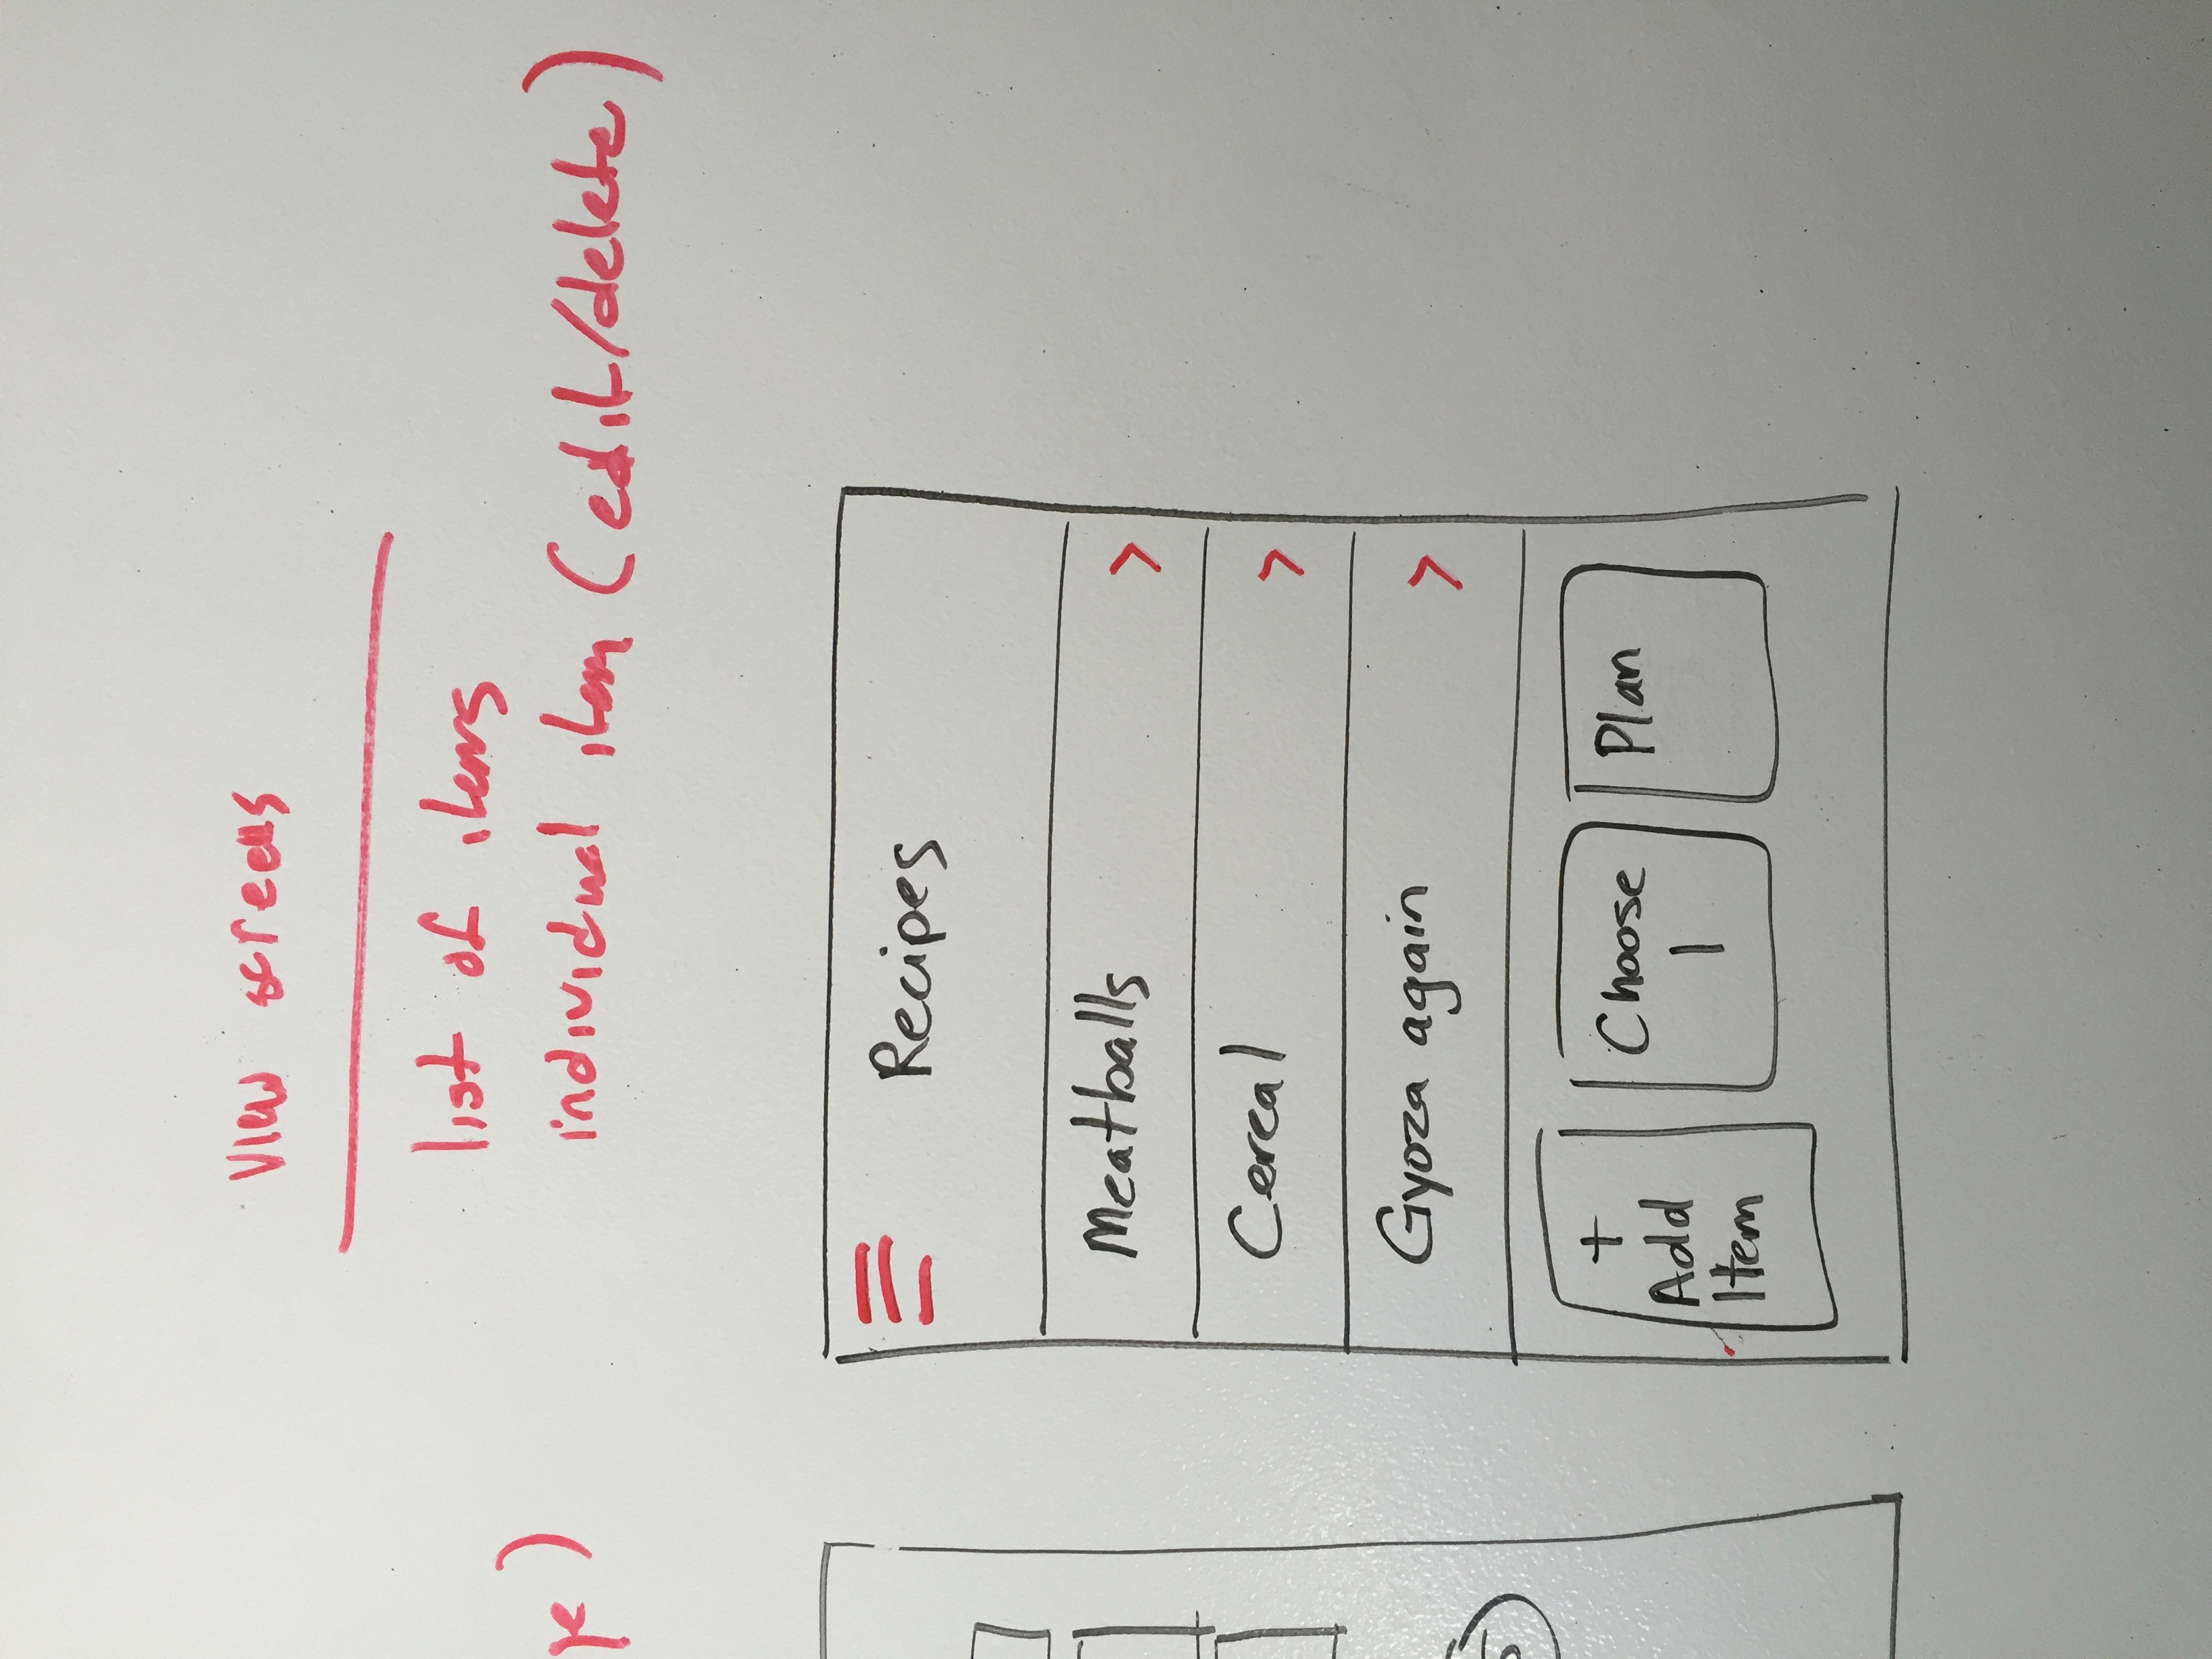 View screens
list of items
individual item (edit/delete)
Recipes
Meatballs >
Cereal >
Gyoza again >
+
Add
Item
Choose
1
Plan